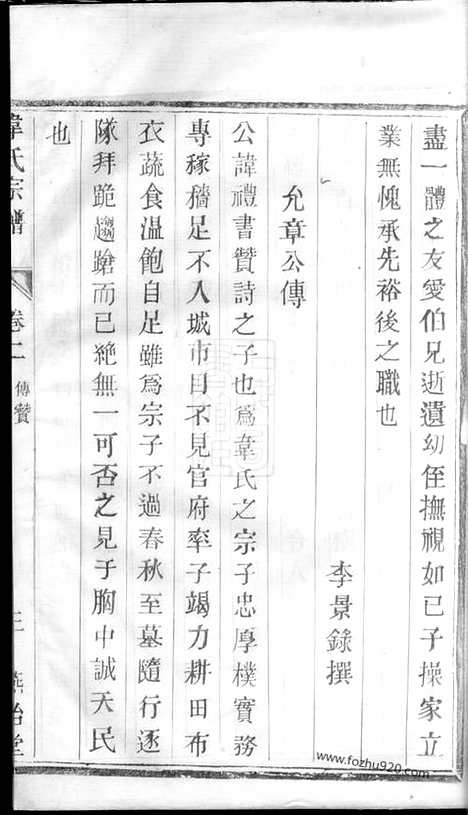 盡一體之友愛伯兄逝遺幼侄撫視如已子操家立
業無愧承先裕後之職也
李景錄撰
允章公傳
公諱禮書贊詩之子也爲韋氏之宗子忠厚樸實務
專稼穡足不入城市目不見官府率子竭力耕田布
衣蔬食溫飽自足雖爲宗子不過春秋至墓隨行逐
隊拜跪趨蹌而已絶無一可否之見于胸中誠天民
也
韋氏宗譜
卷二
傳贊
www.fozhu920.com